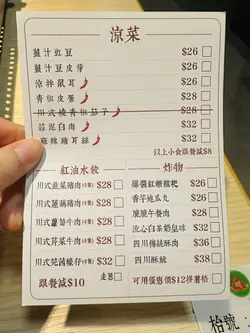 涼菜
薑汁豇豆 $26
薑汁豆皮芽 $28
涼拌鼠耳 $28
青椒皮蛋 $28
川式燒青椒茄子 $28
蒜泥白肉 $32
麻辣豬耳絲 $32
以上小食跟餐減$8
紅油水餃
川式韭菜豬肉(4隻) $28
川式蓮藕豬肉(4隻) $28
川式蘿蔔牛肉(4隻) $28
川式芹菜牛肉(4隻) $28
川式芫茜蠔仔(4隻) $32
跟餐減$10
走蔥
炸物
爆醬紅糖糍粑 $26
香芋地瓜丸 $26
脆脆午餐肉 $28
流心白茶奶皇球 $32
四川傳統酥肉 $36
四川酥魷 $38
可用優惠價$12拼薯格
枱號: